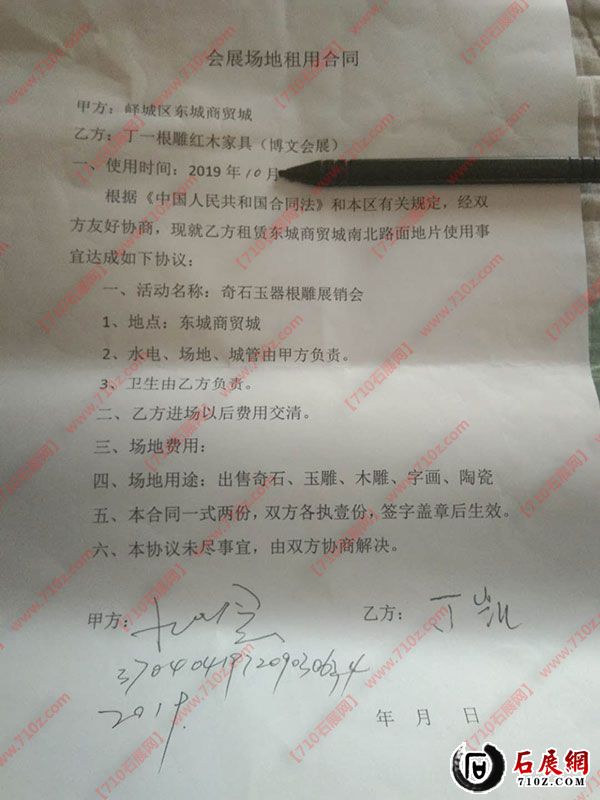 会展场地租用合同
甲方：峄城区东城商贸城
乙方：丁一根雕红木家具（博文会展）
一、使用时间：2019 年 10 月
根据《中国人民共和国合同法》和本区有关规定，经双
方友好协商，现就乙方租赁东城商贸城南北路面地片使用事
宜达成如下协议：
一、活动名称：奇石玉器根雕展销会
1、地点：东城商贸城
2、水电、场地、城管由甲方负责。
3、卫生由乙方负责。
二、乙方进场以后费用交清。
三、场地费用：
四、场地用途：出售奇石、玉雕、木雕、字画、陶瓷
五、本合同一式两份，双方各执壹份，签字盖章后生效。
六、本协议未尽事宜，由双方协商解决。
甲方：
乙方：丁凯
2019.
年 月 日
【710石展网】www.710z.com
石展網
710Z.COM